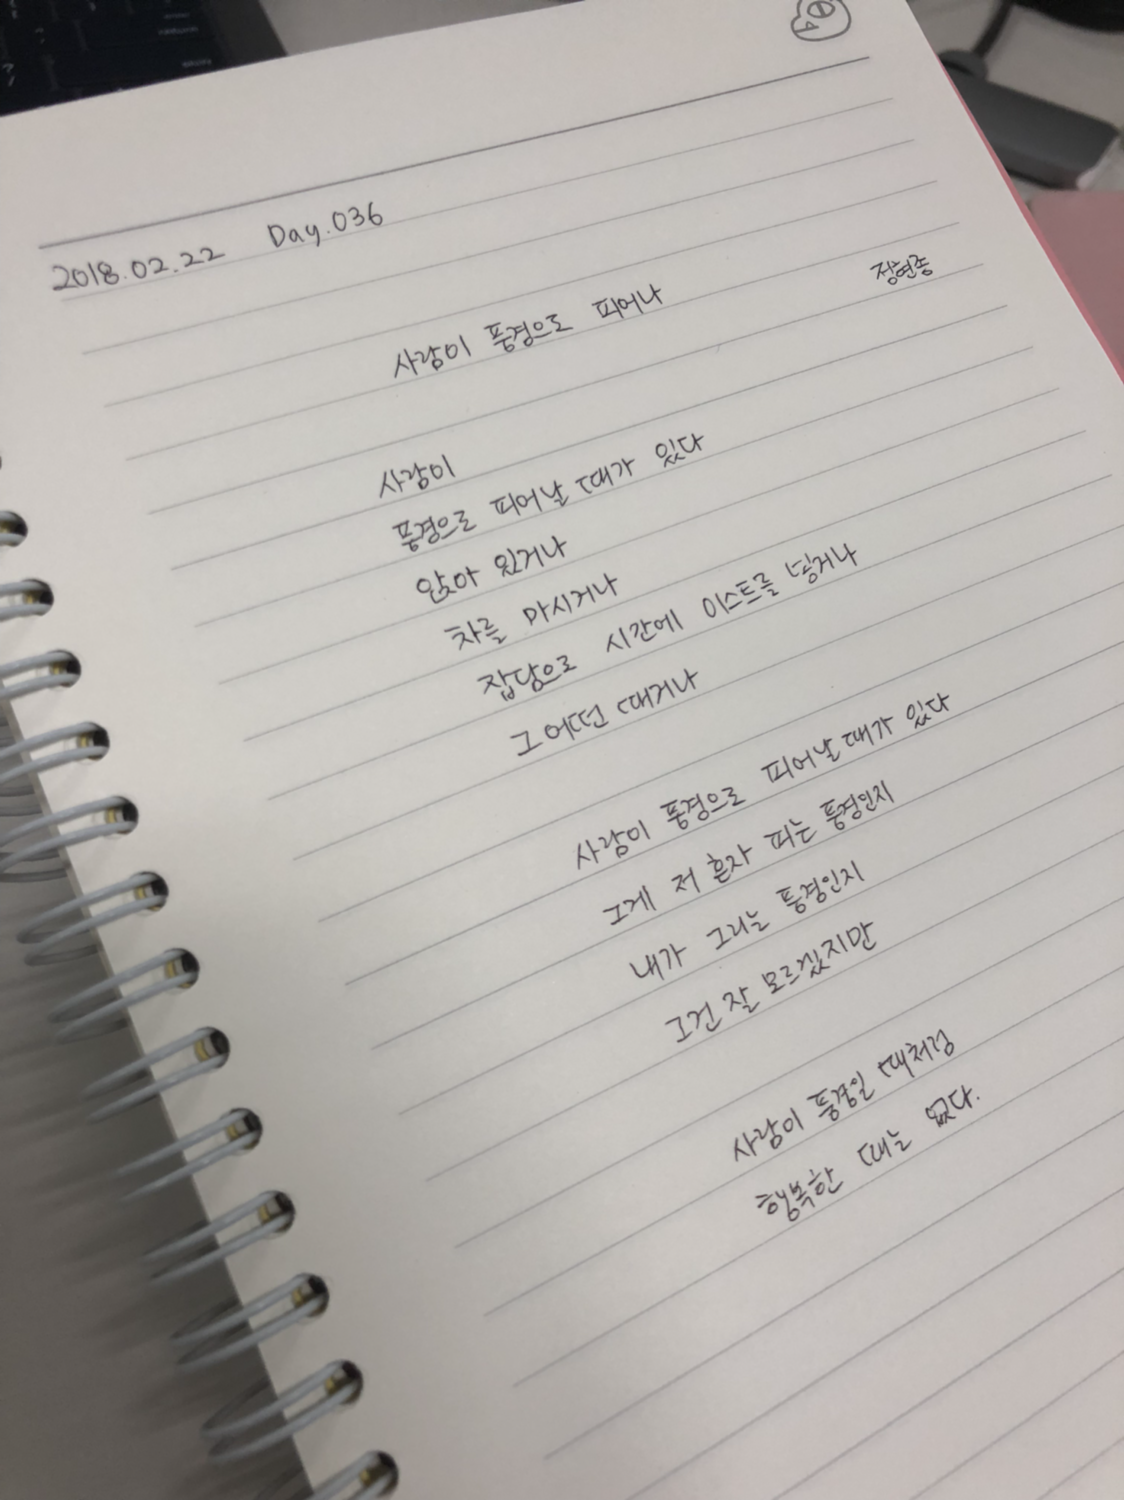 2018.02.22 Day.036
사람이 풍경으로 피어나
정현종
사람이
풍경으로 피어날 때가 있다
앉아 있거나
차를 마시거나
잡담으로 시간에 이스트를 넣거나
그 어떤 때거나
사람이 풍경으로 피어날 때가 있다
그게 저 혼자 피는 풍경인지
내가 그리는 풍경인지
그건 잘 모르겠지만
사람이 풍경일 때처럼
행복한 때는 없다.